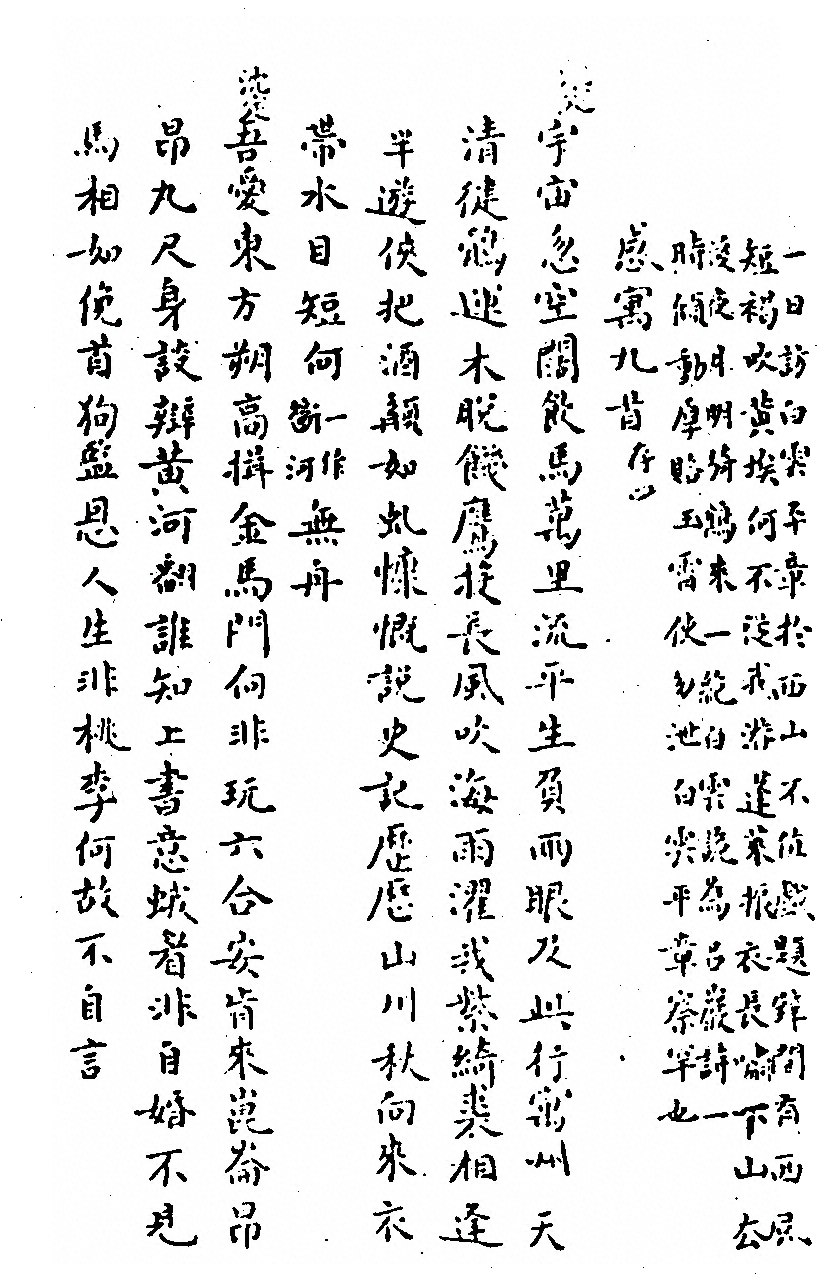 一日訪白雲平章於西山不值戲題壁間有西風
短褐吹黃埃何不從我游蓬萊振衣長嘯下山去
夜夜月明騎鶴來一絕白雲詭為呂巖詩一
時傾動厚賂玉霄使勿泄白雲平章察罕也
感寓九首 存四
宇宙忽空闊飲馬萬里流平生負兩眼及此行州天
清健鶻逝木脫饑鷹投長風吹海雨濯我紫綺裘相逢
半遊俠把酒顏如虬慷慨說史記歷歷山川秋向來衣
帶水目短何一作斷河無舟
吾愛東方朔高揖金馬門何非玩六合安肯來崑崙昂
昂九尺身談辯黃河翻誰知上書意蛾眉非自婚不見
馬相如俛首狗監恩人生非桃李何故不自言